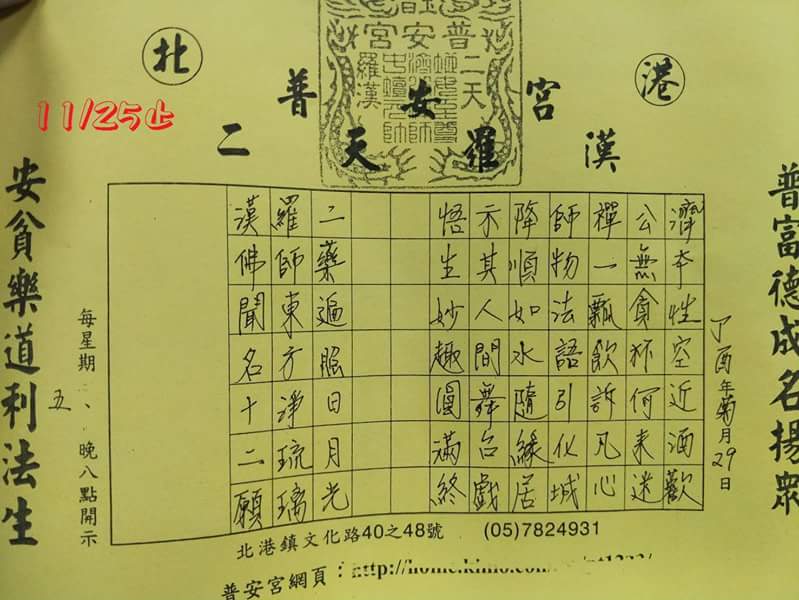 北 港
普安宮
二天羅漢
11/25止
普安宮
二天
羅漢
普富德成名揚眾
丁酉年菊月29日
濟本性空近酒歡
公無貪杯何來迷
禪一瓢飲訴凡心
師物法語引化城
降順如水隨緣居
示其人間舞台戲
悟生妙趣圓滿終
二藥遍照日月光
羅師東方淨琉璃
漢佛聞名十二願
每星期五、晚八點開示
安貧樂道利法生
北港鎮文化路40之48號 (05)7824931
普安宮網頁：http://home.kimo.com